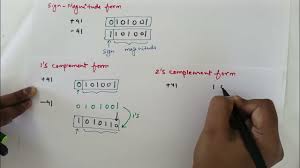 Sign-Magnitude form
+41 0 101001
-41 1 101001
sign magnitude
1's complement form
+41 0 101001
-41 0 101001
1's
1 010110
2's complement form
+41